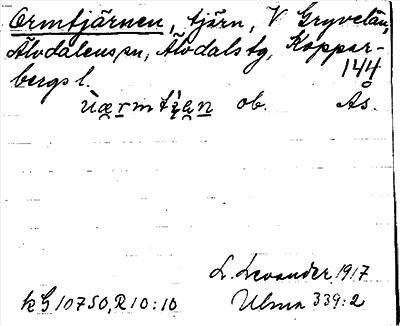 Ormtjärnen, tjärn, V Gryvelån,
Älvdalens sn, Älvdals tg, Koppar-
bergs l. 144
ob. Ås.
L. Levander 1917
kG 10750, R 10:10 Ulma 339:2